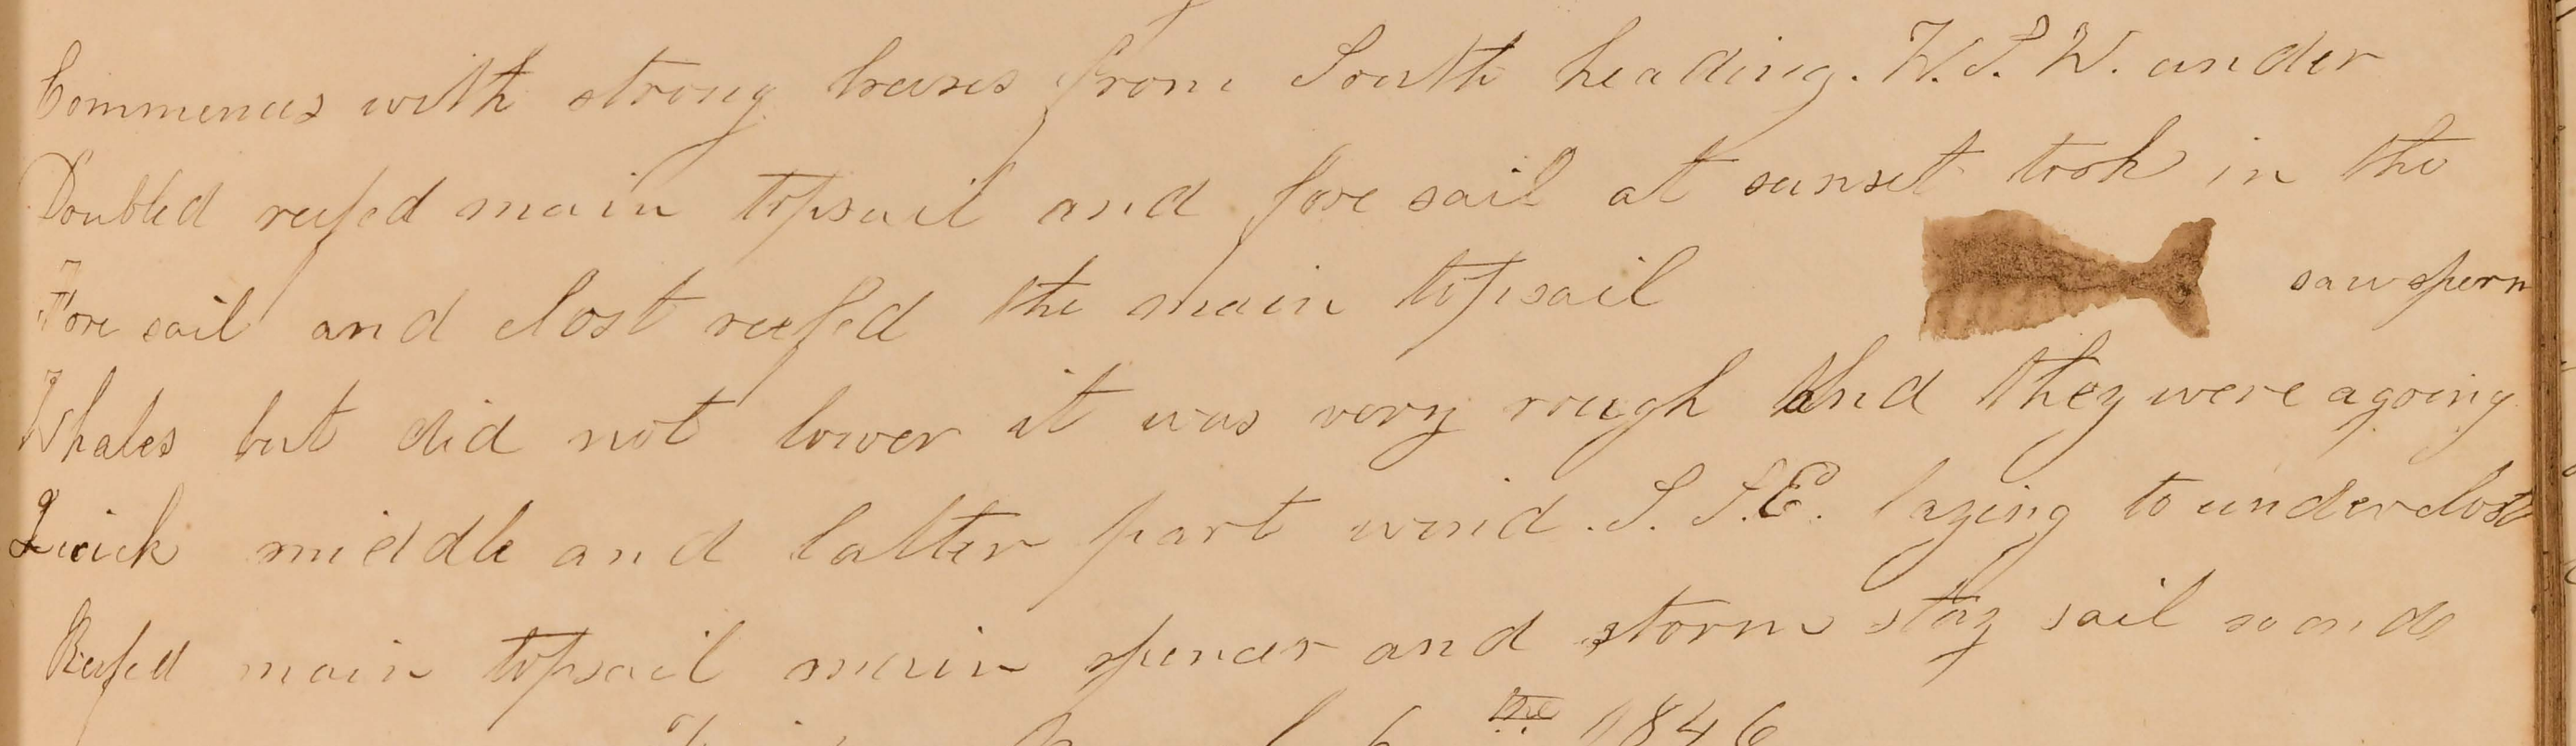 Commences with strong breases from South heading. W.S.W. under
Doubled reefed main topsail and fore sail at sunset took in the
Fore sail and clost reefed the main topsail saw sperm
Whales but did not lower it was very rough and they were agoing
Quick middle and latter part wind. S. S.E. laying to under clost
Reefed main topsail main spencer and storm stay sail so ends
1846